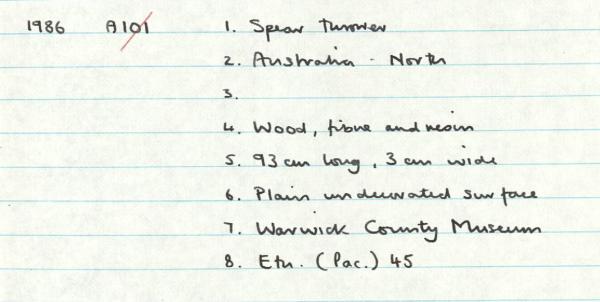 1986 A101 1. Spear Thrower
2. Australia - North
3.
4. Wood, fibre and resin
5. 93 cm long, 3 cm wide
6. Plain undecorated surface
7. Warwick County Museum
8. Etn. (Pac.) 45